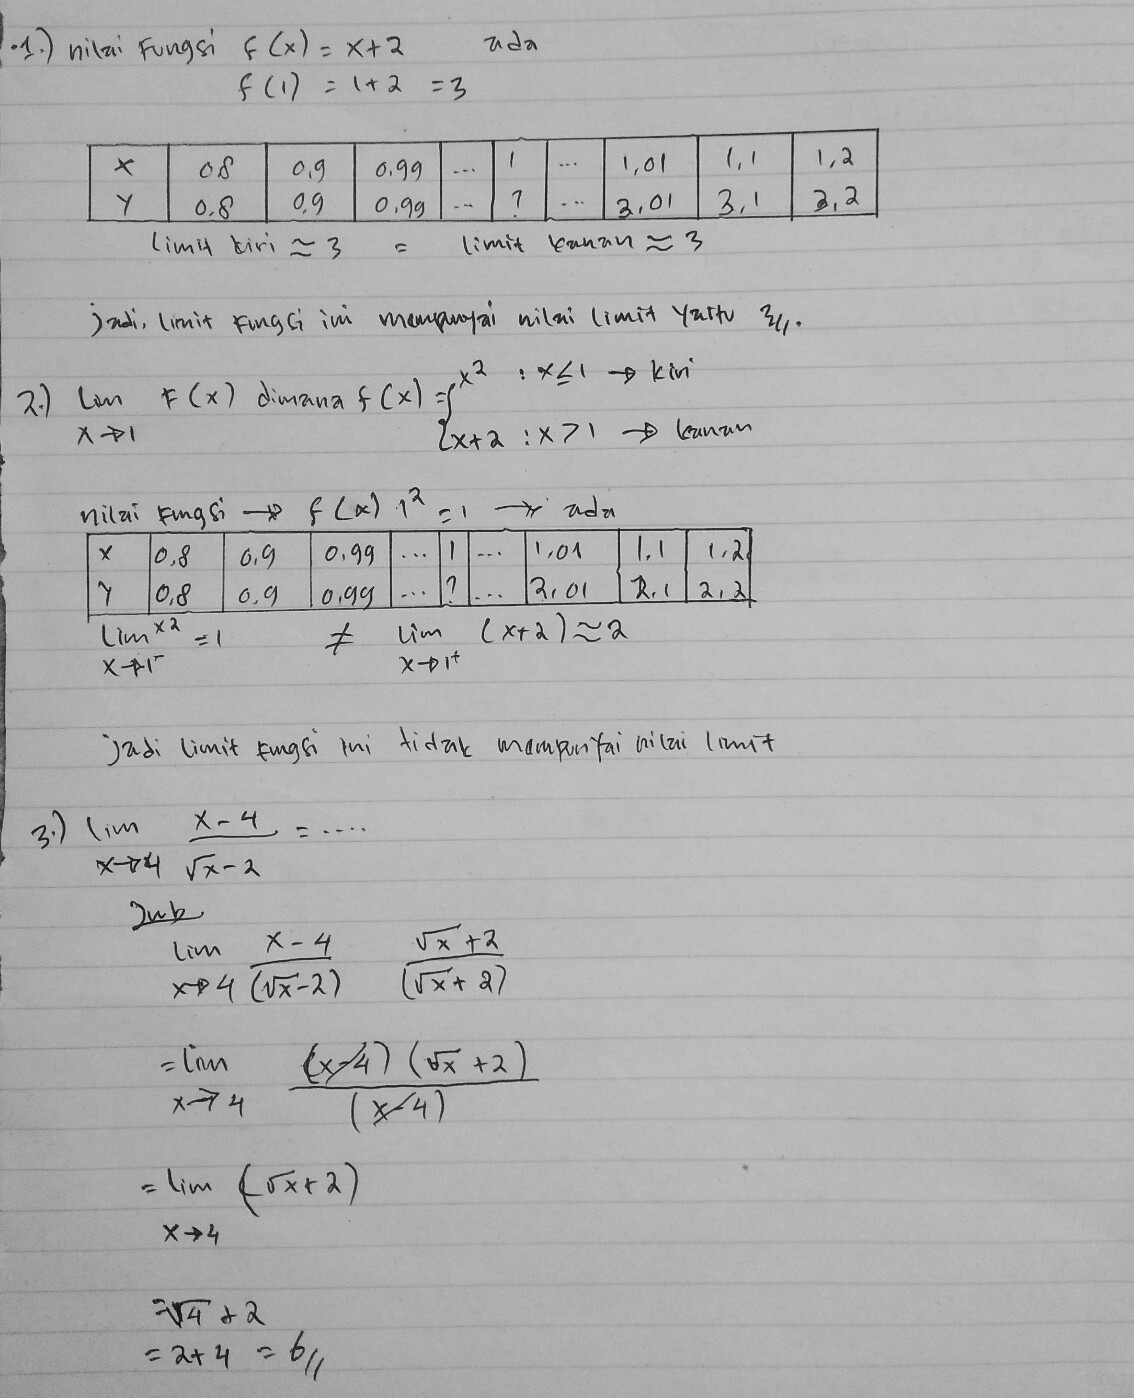 1.) nilai Fungsi f(x) = x+2 ada
f(1) = 1+2 = 3
x 0.8 0,9 0.99 ... 1 ... 1,01 1,1 1,2
y 0.8 0.9 0.99 ... ? ... 3,01 3,1 3,2
limit kiri ≈ 3 = limit kanan ≈ 3
jadi, limit Fungsi ini mempunyai nilai limit yaitu 3//.
2.) Lim F(x) dimana f(x) = { x2 : x ≤ 1 → kiri
x→1 x+2 : x > 1 → kanan
nilai Fungsi → f(x) 1² = 1 → ada
x 0,8 0,9 0.99 ... 1 ... 1,01 1,1 1,2
y 0,8 0.9 0,99 ... ? ... 2,01 2,1 2,2
Lim x2 = 1 ≠ Lim (x+2) ≈ 2
x→1⁻ x→1⁺
jadi limit Fungsi ini tidak mempunyai nilai limit
3.) lim x-4 = ....
x→4 √x-2
Jwb
lim x-4 √x+2
x→4 (√x-2) (√x+2)
= lim (x-4) (√x+2)
x→4 (x-4)
= lim (√x+2)
x→4
= √4 + 2
= 2+4 = 6//